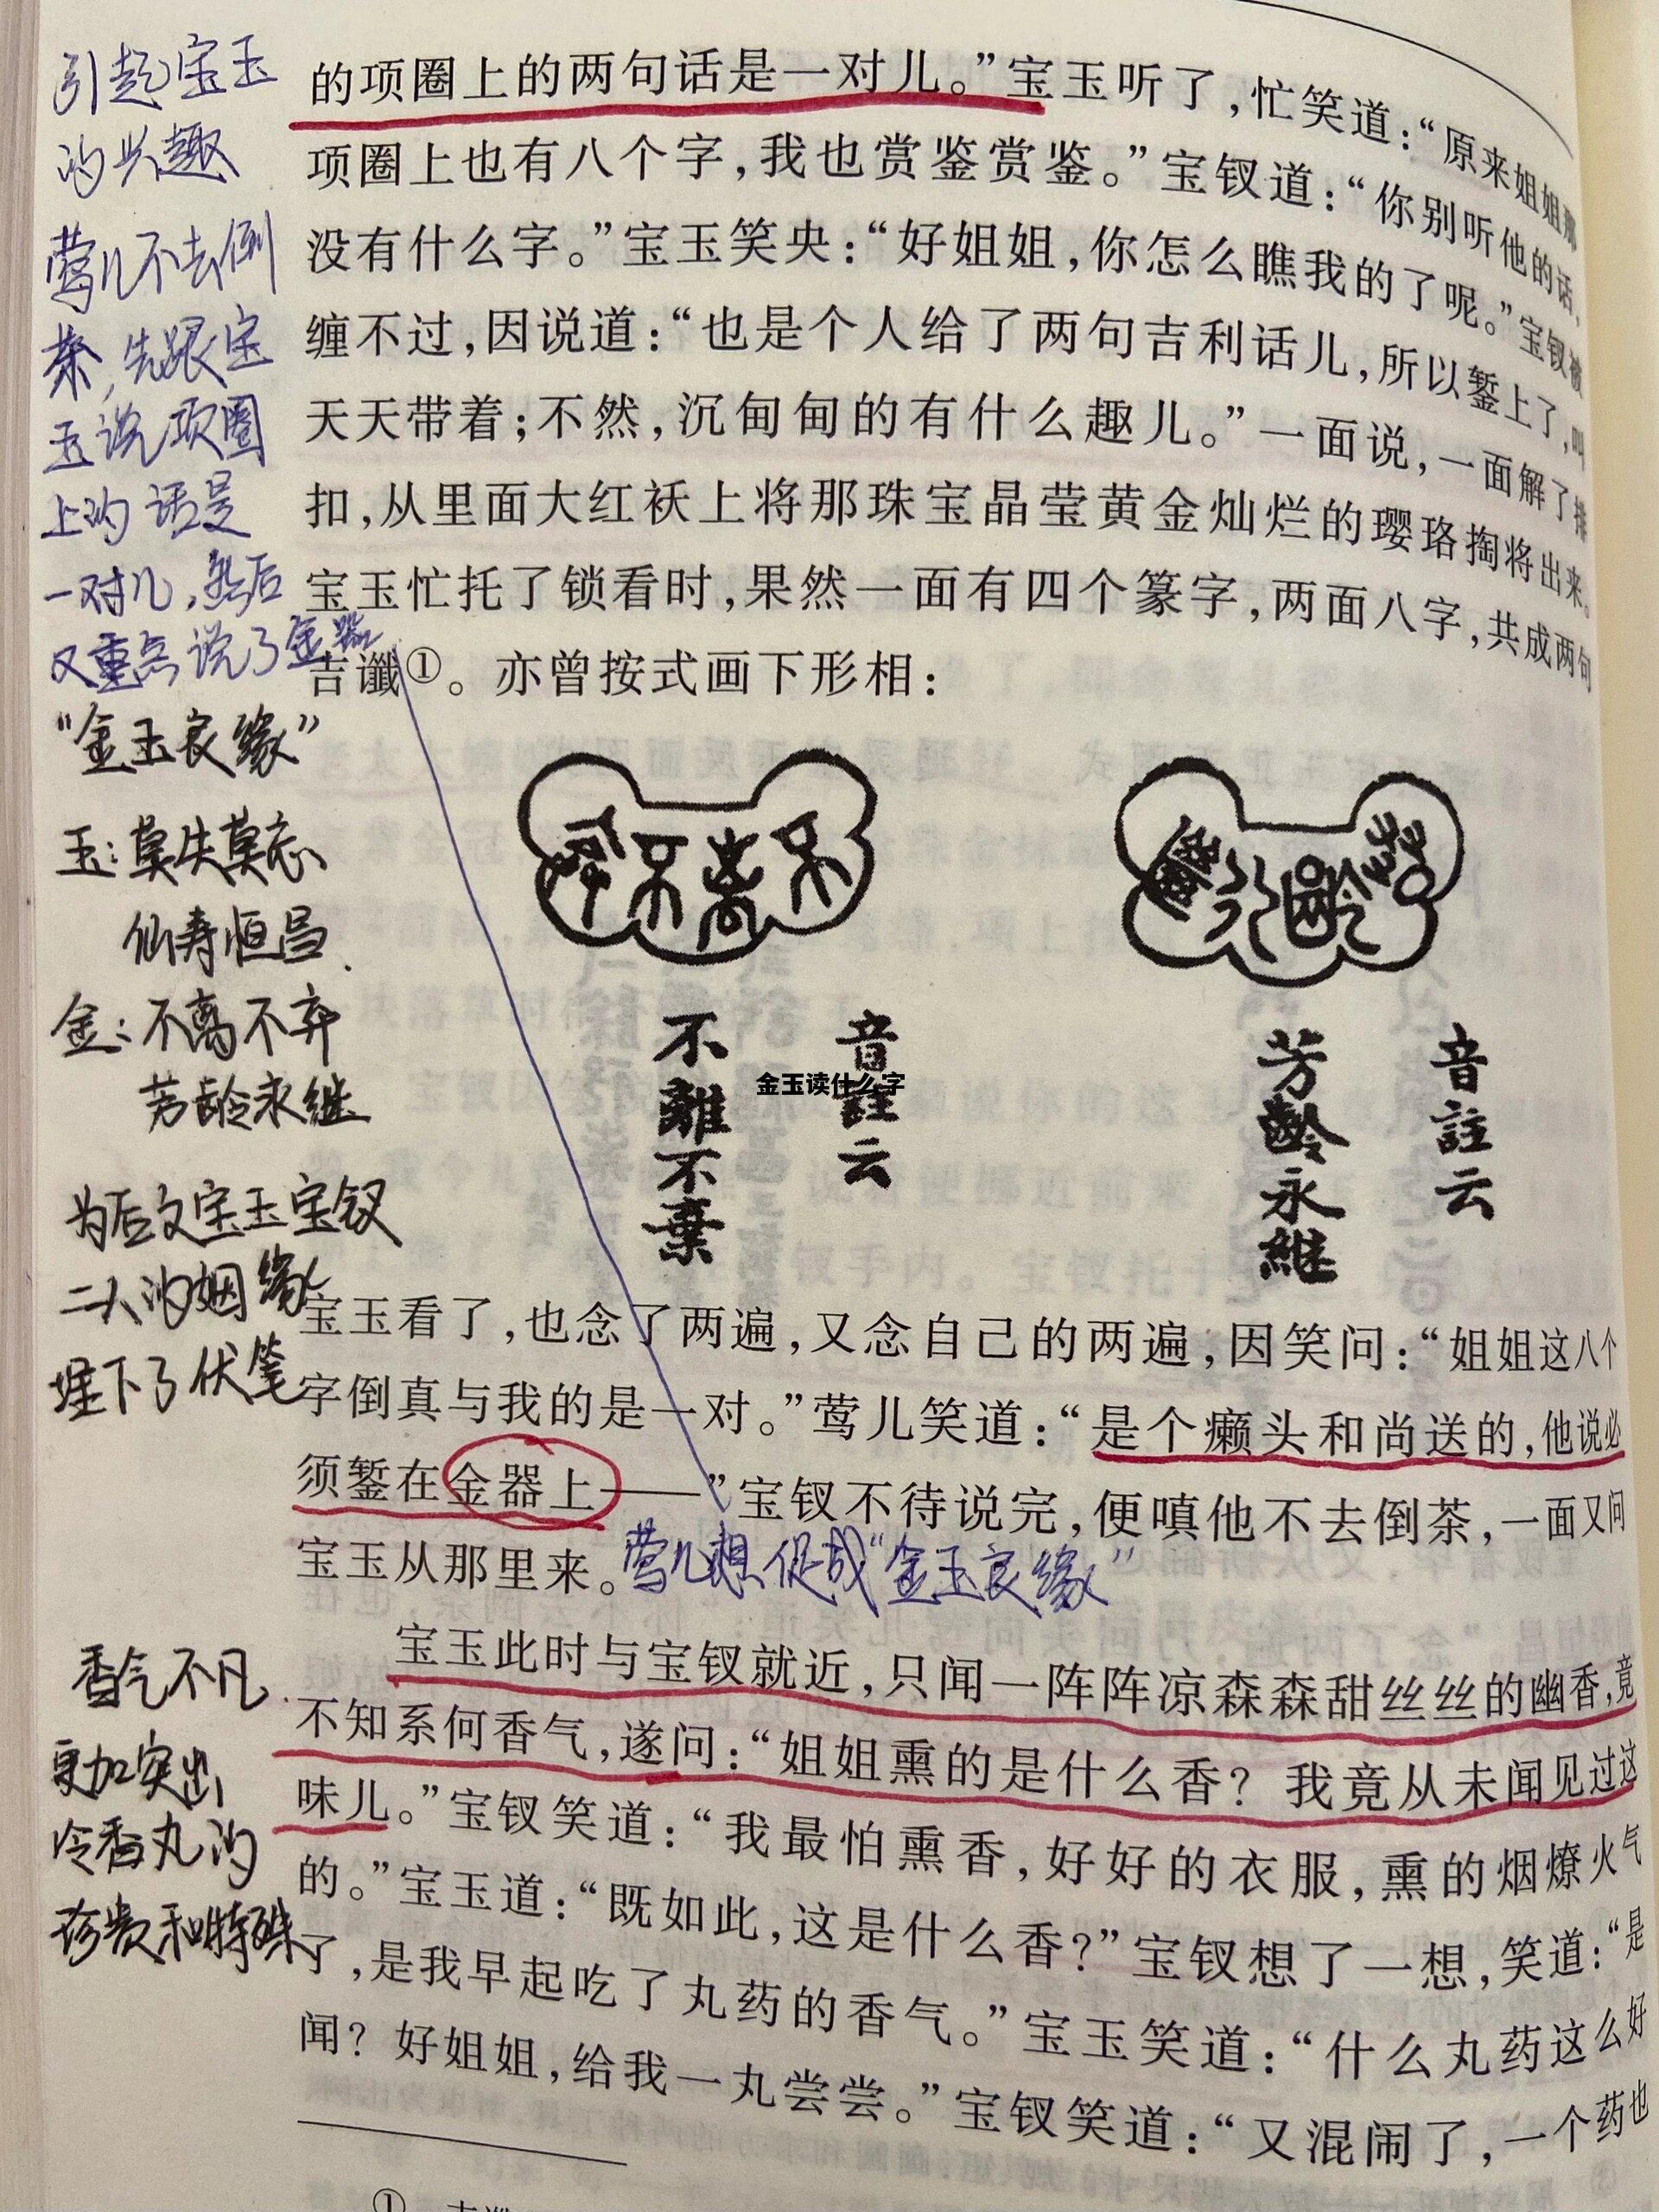 的项圈上的两句话是一对儿。”宝玉听了,忙笑道:“原来姐姐那
项圈上也有八个字,我也赏鉴赏鉴。”宝钗道:“你别听他的话,
没有什么字。”宝玉笑央:“好姐姐,你怎么瞧我的了呢。”宝钗被
缠不过,因说道:“也是个人给了两句吉利话儿,所以錾上了,叫
天天带着;不然,沉甸甸的有什么趣儿。”一面说,一面解了排
扣,从里面大红袄上将那珠宝晶莹黄金灿烂的璎珞掏将出来。
宝玉忙托了锁看时,果然一面有四个篆字,两面八字,共成两句
吉谶①。亦曾按式画下形相:
引起宝玉
的兴趣
莺儿不去倒
茶,先跟宝
玉说项圈
上的话是
一对儿,然后
又重点说了金器
“金玉良缘”
玉:莫失莫忘
仙寿恒昌.
金:不离不弃
芳龄永继
为后文宝玉宝钗
二人的姻缘
埋下了伏笔
音註云
不離不棄
金玉读什么字
音註云
芳齡永繼
宝玉看了,也念了两遍,又念自己的两遍,因笑问:“姐姐这八个
字倒真与我的是一对。”莺儿笑道:“是个癞头和尚送的,他说必
须錾在金器上——”宝钗不待说完,便嗔他不去倒茶,一面又问
宝玉从那里来。
莺儿想促成“金玉良缘”
宝玉此时与宝钗就近,只闻一阵阵凉森森甜丝丝的幽香,竟
不知系何香气,遂问:“姐姐熏的是什么香?我竟从未闻见过这
味儿。”宝钗笑道:“我最怕熏香,好好的衣服,熏的烟燎火气
的。”宝玉道:“既如此,这是什么香?”宝钗想了一想,笑道:“是
了,是我早起吃了丸药的香气。”宝玉笑道:“什么丸药这么好
闻?好姐姐,给我一丸尝尝。”宝钗笑道:“又混闹了,一个药也
香气不凡.
更加突出
冷香丸的
珍贵和特殊
①